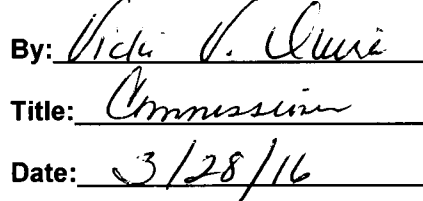 By: Vicki V.
Title: Commissioner
Date: 3/28/16